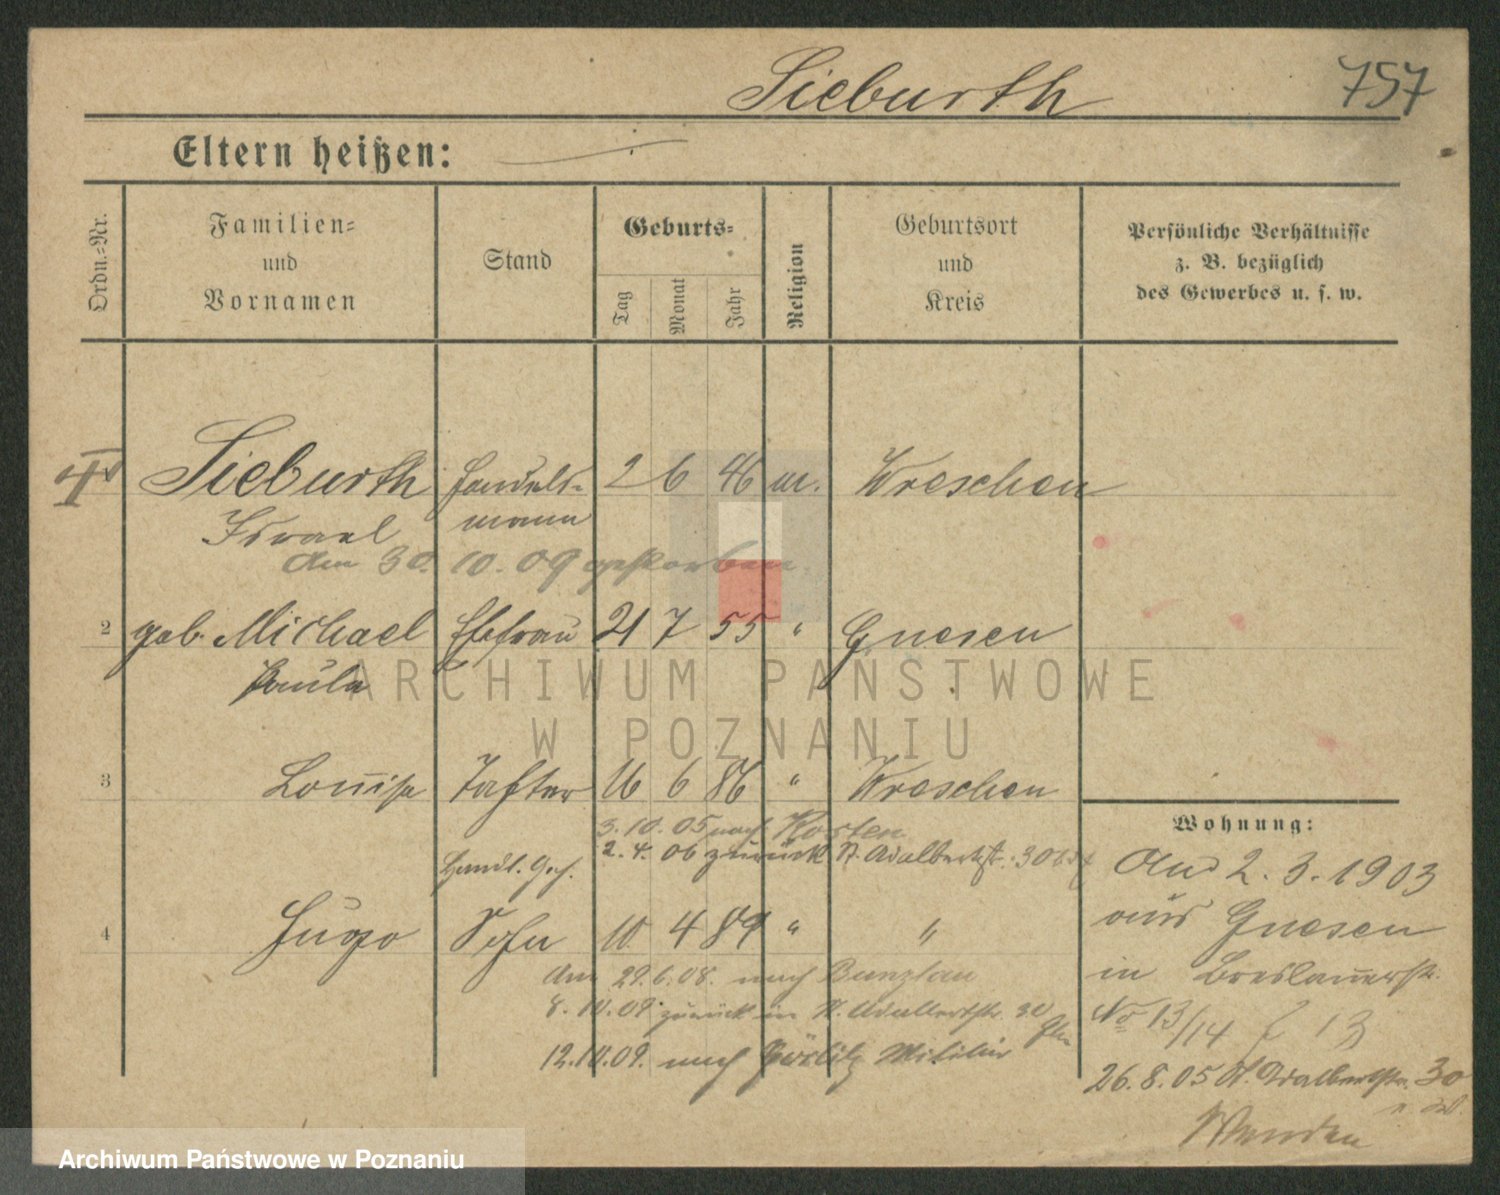 Sieburth 757
Eltern heißen:
Ordn.-Nr.
Familien-
und
Vornamen
Stand
Geburts-
Tag
Monat
Jahr
Religion
Geburtsort
und
Kreis
Persönliche Verhältnisse
z. B. bezüglich
des Gewerbes u. s. w.
Sieburth Handels- 2 6 46 m. Wreschen
Israel mann
Am 30. 10. 09 gestorben.
2 geb. Michael Ehefrau 21 7 55 " Gnesen
Paula
ARCHIWUM PAŃSTWOWE
W POZNANIU
3 Louise Tochter 16 6 86 " Wreschen
3. 10. 05 nach Kosten
2. 4. 06 zurück St. Adalbertstr. 30
Handl. Geh.
4 Hugo Sohn 10 4 89 " "
Am 29.6.08. nach Bunzlau
8. 10. 09. zurück in St. Adalbertstr. 30
12.10.09. nach Görlitz Militär
Wohnung:
Am 2. 3. 1903
aus Gnesen
in Breslauerstr.
No 13/14 13
26. 8. 05 St. Adalbertstr. 30
Archiwum Państwowe w Poznaniu